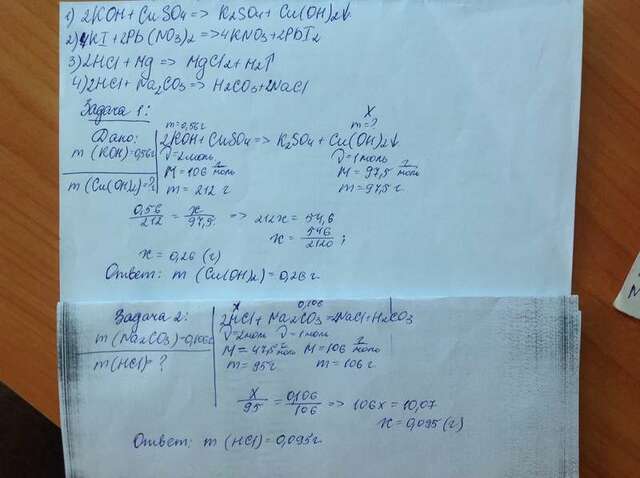 1) 2KOH + CuSO4 => K2SO4 + Cu(OH)2↓
2) 4KI + 2Pb(NO3)2 => 4KNO3 + 2PbI2
3) 2HCl + Mg => MgCl2 + H2↑
4) 2HCl + Na2CO3 => H2CO3 + 2NaCl
Задача 1:
Дано:
m (KOH) = 0,56г
m (Cu(OH)2) = ?
m = 0,56г
x
m = ?
2KOH + CuSO4 => K2SO4 + Cu(OH)2↓
ν = 2 моль
ν = 1 моль
M = 106 г/моль
M = 97,5 г/моль
m = 212 г
m = 97,5 г
0,56/212 = x/97,5 => 212x = 54,6
x = 546/2120;
x = 0,26 (г)
Ответ: m (Cu(OH)2) = 0,26г.
Задача 2:
m (Na2CO3) = 0,106г
m (HCl) = ?
x
0,106
2HCl + Na2CO3 = 2NaCl + H2CO3
ν = 2моль ν = 1 моль
M = 47,5 г/моль M = 106 г/моль
m = 95г m = 106 г
x/95 = 0,106/106 => 106x = 10,07
x = 0,095 (г)
Ответ: m (HCl) = 0,095г.